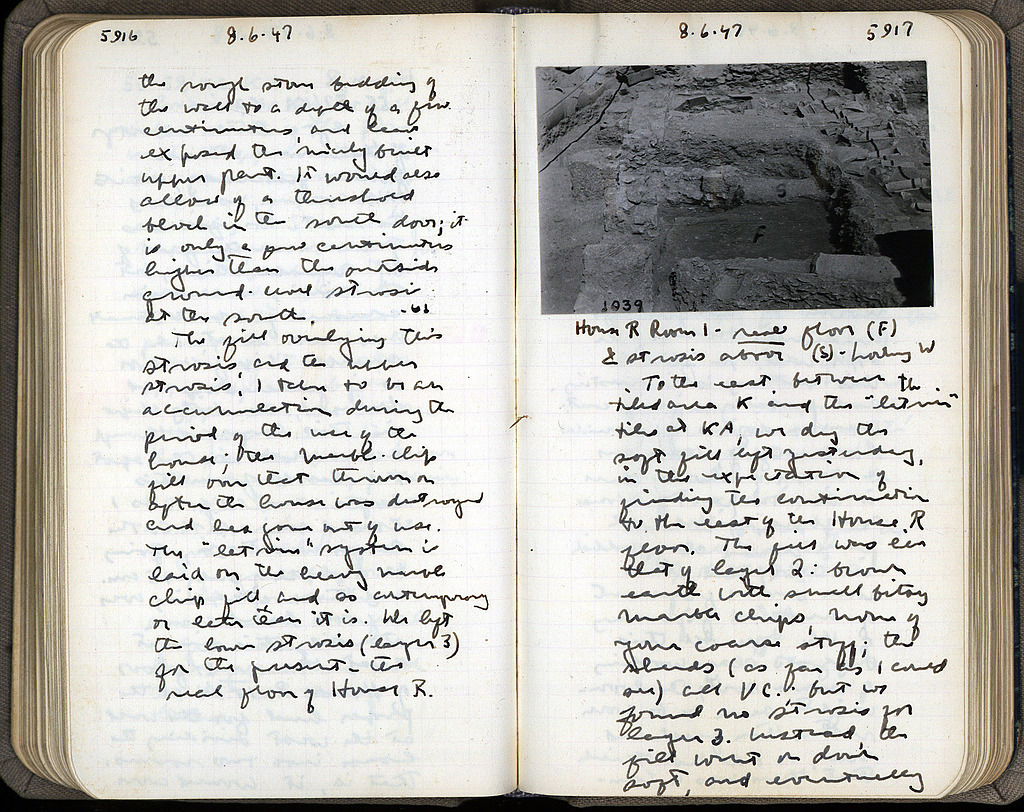 5916
8.6.47
the rough stone bedding of
the wall to a depth of a few
centimetres, and leave
exposed the nicely built
upper part. It would also
allow of a threshold
block in the south door; it
is only a few centimetres
higher than the outside
ground level strosis
at the south. -61
The fill overlying this
strosis, and the upper
strosis, I take to be an
accumulation during the
period of the use of the
house; the marble chip
fill over that thrown on
after the house was destroyed
and has gone out of use.
The "latrine" system is
laid on the heavy marble
chip fill and so contemporary
or later than it is. We left
the lower strosis (layer 3)
for the present - the
real floor of House R.
8.6.47
5917
S
F
1939
House R Room 1 - real floor (F)
& strosis above (S) - looking W
To the east, between the
tiled area K and the "latrine"
tiles at KA, we dug the
soft fill left yesterday,
in the expectation of
finding the continuation
to the east of the House R
floor. The fill was like
that of layer 2: brown
earth with small bits of
marble chips, none of
your coarse stuff; the
sherds (as far as I could
see) all V C.; but we
found no strosis for
layer 3. Instead, the
fill went on down
soft, and eventually